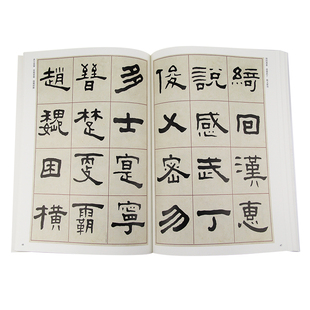 綺回漢惠
說感武丁
俊乂密勿
多士寔寧
晉楚更霸
趙魏困橫